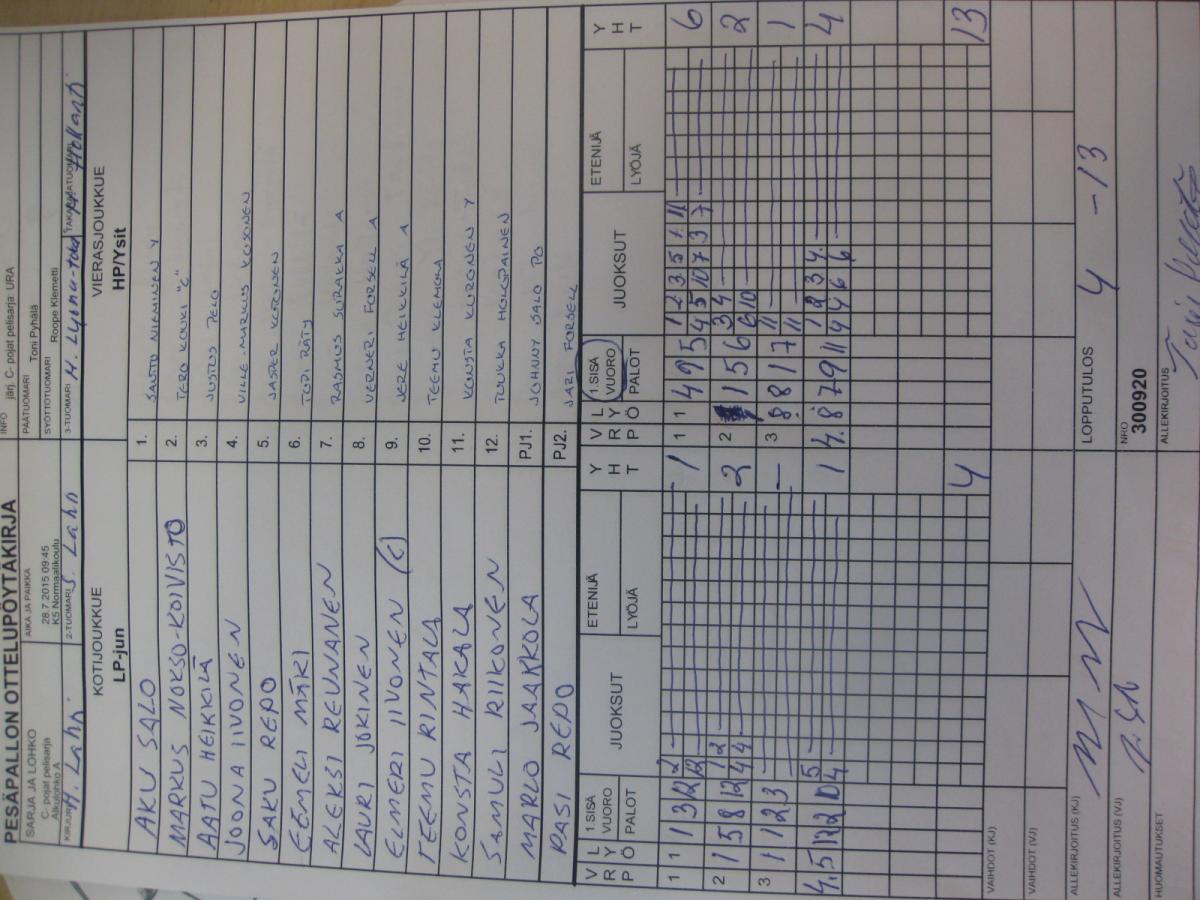 PESÄPALLON OTTELUPÖYTÄKIRJA
SARJA JA LOHKO
C- pojat pelisarja
Alkulohko A
AIKA JA PAIKKA
28.7.2015 09:45
K5 Normaalikoulu
INFO järj. C- pojat pelisarja: URA
PÄÄTUOMARI Toni Pyhälä
SYÖTTÖTUOMARI Roope Klemetti
KIRJURI H. Lahn
2-TUOMARI S. Lahn
3-TUOMARI
KOTIJOUKKUE
LP-jun
VIERASJOUKKUE
HP/Ysit
AKU SALO 1. SANTTU NIEMINEN Y
MARKUS NOKSO-KOIVISTO 2. TERO KOUKI "C"
AATU HEIKKILÄ 3. JUSTUS
JOONA IIVONEN 4. VILLE-MARKUS
SAKU REPO 5. JASPER
EEMELI MÄKI 6. TOPI RÄTY
ALEKSI REUNANEN 7. RASMUS SURAKKA A
LAURI JOKINEN 8. VERNERI FORSELL A
ELMERI IIVONEN (C) 9. JERE HEIKKILÄ A
TEEMU RINTALA 10. TEEMU KLEMOLA
KONSTA HAKALA 11. KONSTA KURONEN Y
SAMULI RIIKONEN 12. TUUKKA HOLOPAINEN
MARLO JAAKKOLA PJ1. JOHNNY SALO PO
PASI REPO PJ2. JARI FORSELL
V R P L Y Ö 1.SISÄ VUORO PALOT JUOKSUT ETENIJÄ LYÖJÄ Y H T V R P L Y Ö 1.SISÄ VUORO PALOT JUOKSUT ETENIJÄ LYÖJÄ Y H T
1 1 1 3 12 2 1 1 1 4 9 5 1 2 3 5 1 11 6
12 4 5 10 7 3 7
2 1 5 8 12 1 12 2 2 1 5 6 3 4 2
4 4 6 10
3 1 1 2 3 – 3 8 8 1 7 11 1
11
4. 5 11 2 10 5 1 4. 8 7 9 11 1 2 3 4 4
4 4 4 6 6
4 13
VAIHDOT (KJ)
VAIHDOT (VJ)
ALLEKIRJOITUS (KJ)
LOPPUTULOS 4 - 13
ALLEKIRJOITUS (VJ)
NRO
300920
HUOMAUTUKSET
ALLEKIRJOITUS